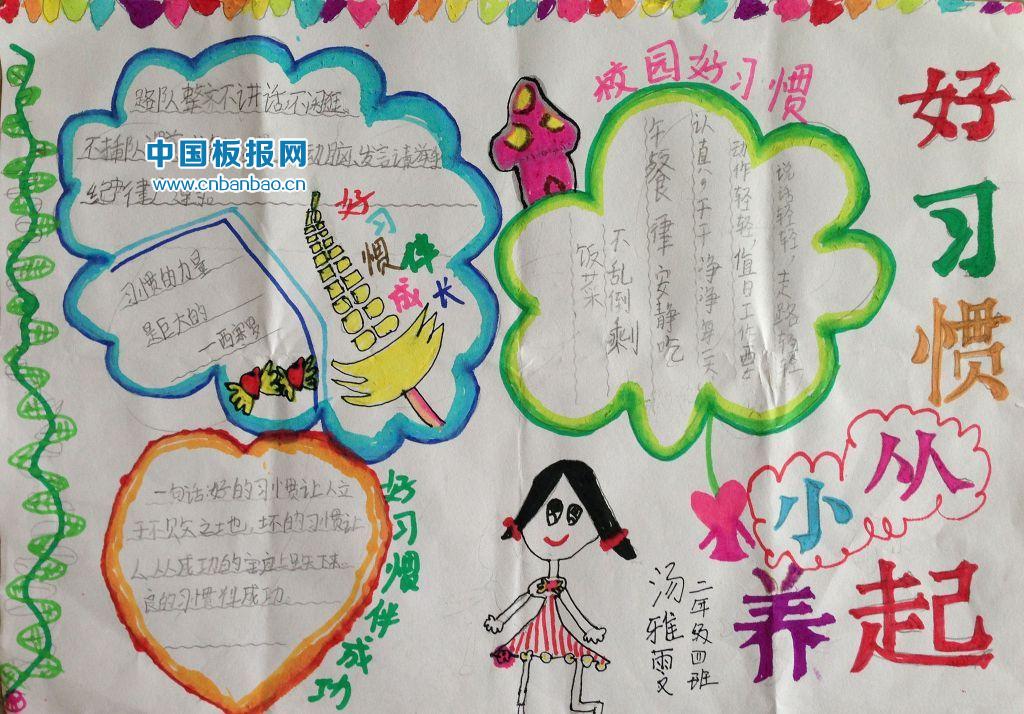 好习惯
从小
养起
校园好习惯
说话轻轻,走路轻轻
动作轻轻,值日工作要
认真,干干净净每一天
午餐 律 安静吃
不乱倒剩
饭菜
路队整齐不讲话,不逗逛
不插队
动脑,发言请举手
纪律
中国板报网
www.cnbanbao.cn
好习惯伴成长
习惯的力量
是巨大的
—西塞罗
一句话:好的习惯让人立
于不败之地,坏的习惯让
人从成功的宝座上跌下来。
良的习惯伴成功。
好习惯伴成功
二年级四班
汤雅雯